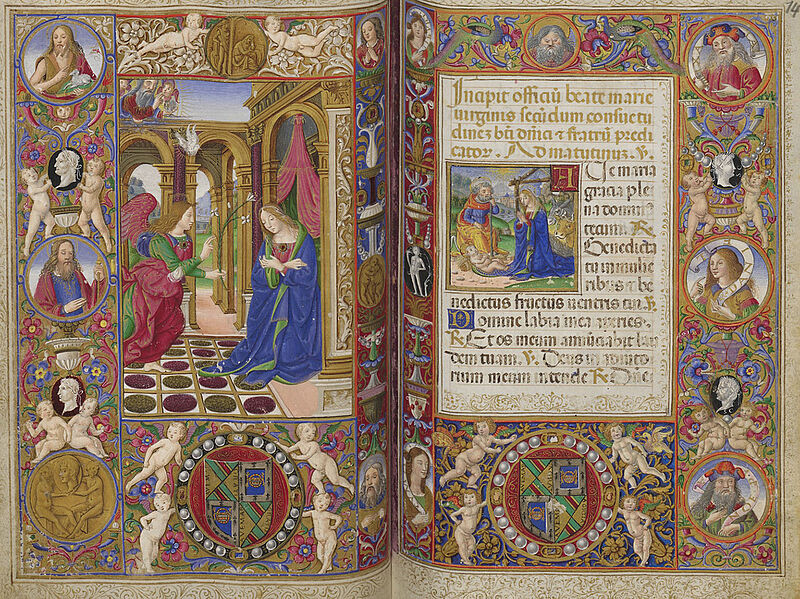 14
Incipit officiũ beate marie
uirginis secũdum consuetu
dinez
ffratrũ predi
cator. Ad matutinuz. V.
Aue maria
gracia ple
na domin
tecum. R
Benedicta
tu in mulie
ribus z be
nedictus fructus uentris tui. V.
Domine labia mea aperies.
R. Et os meum annũciabit lau
dem tuam. V. Deus in adiuto
rium meum intende R. Dñe